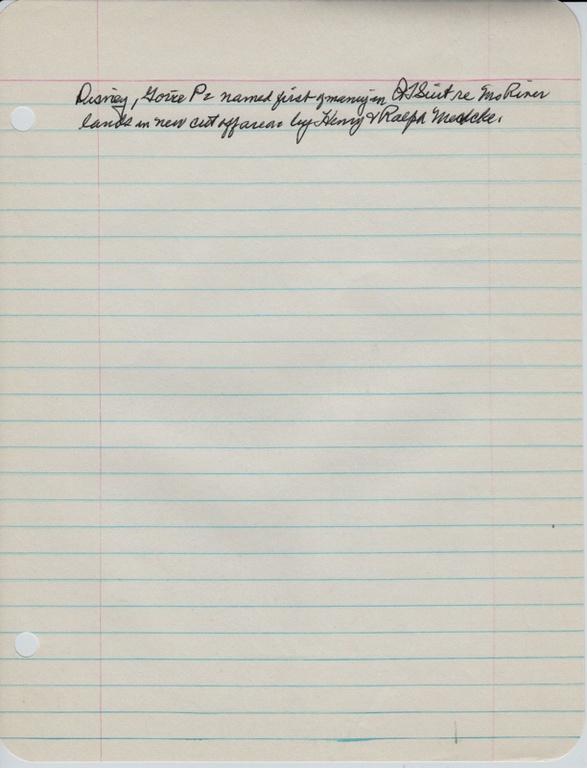 Disney, Govie Pz named first of many in QT Suit re Mo River
lands in new cut off areas by Henry & Ralph